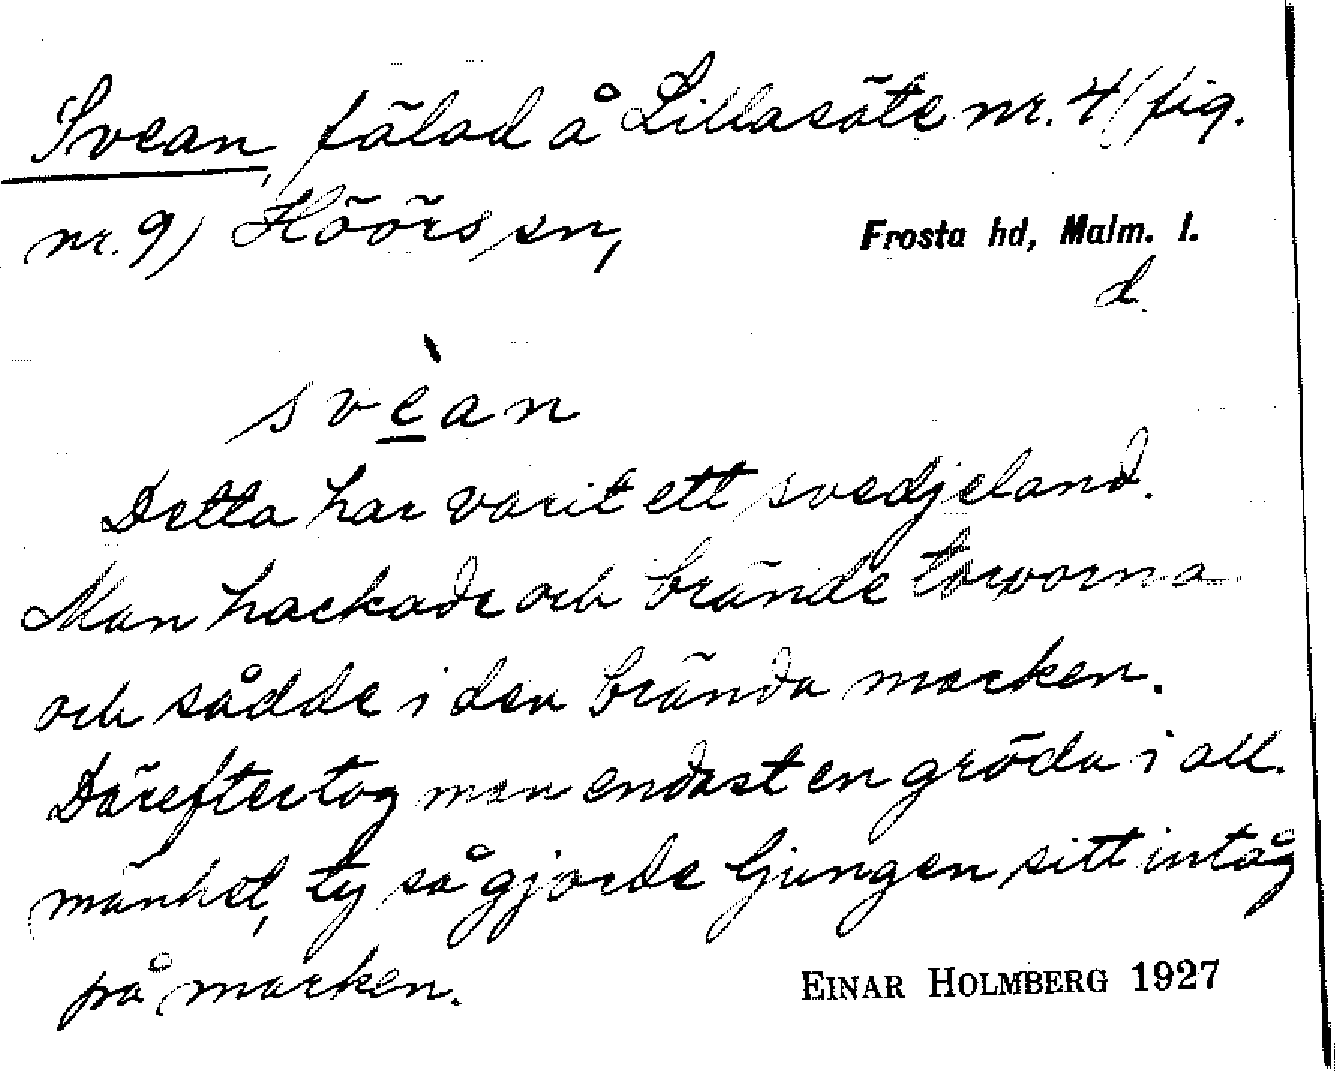 Svean, fälad å Lillasäte nr. 4 (fig.
nr. 9) Höörs sn, Frosta hd, Malm. l.
d.
svèan
Detta har varit ett svedjeland.
Man hackade och brände torvorna
och sådde i den brända marken.
Därefter tog man endast en gröda i all-
mänhet, ty så gjorde ljungen sitt intåg
på marken.
EINAR HOLMBERG 1927